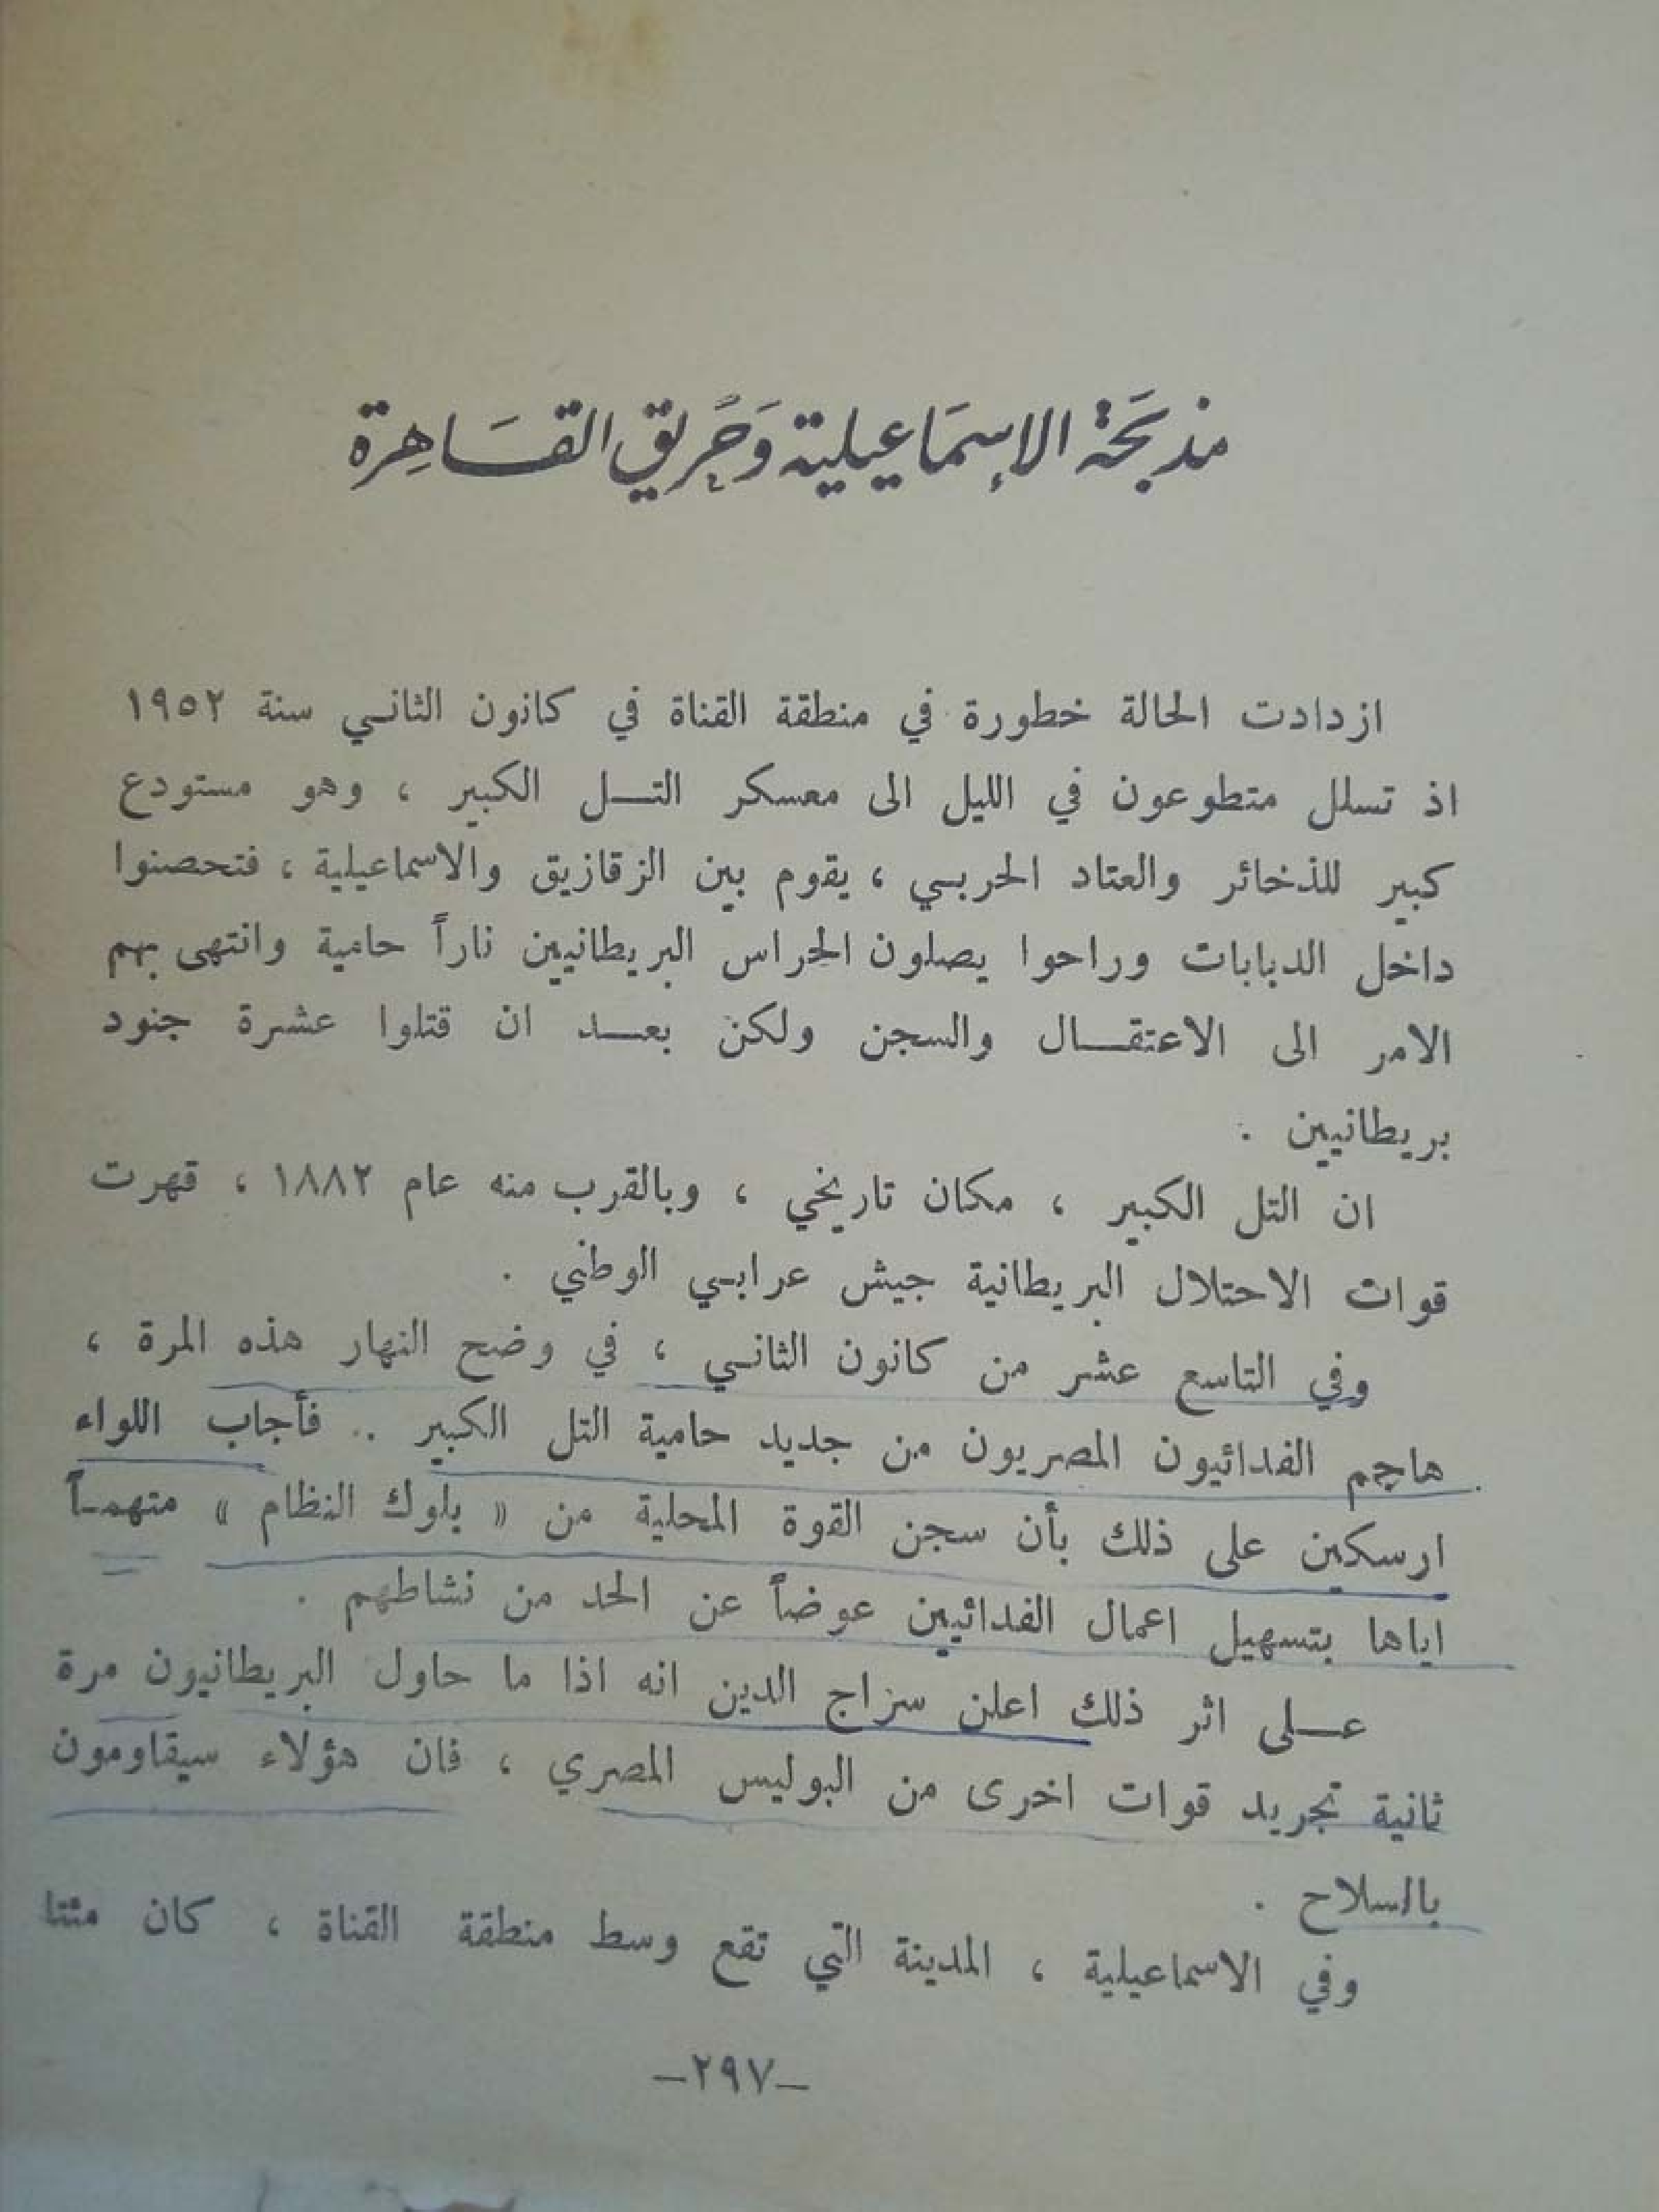 مذبَحَة الإسمَاعيلية وَحَريق القَاهِرة
ازدادت الحالة خطورة في منطقة القناة في كانون الثاني سنة ١٩٥٢
اذ تسلل متطوعون في الليل الى معسكر التل الكبير ، وهو مستودع
كبير للذخائر والعتاد الحربي ، يقوم بين الزقازيق والاسماعيلية ، فتحصنوا
داخل الدبابات وراحوا يصلون الحراس البريطانيين ناراً حامية وانتهى بهم
الامر الى الاعتقال والسجن ولكن بعد ان قتلوا عشرة جنود
بريطانيين .
ان التل الكبير ، مكان تاريخي ، وبالقرب منه عام ١٨٨٢ ، قهرت
قوات الاحتلال البريطانية جيش عرابي الوطني .
وفي التاسع عشر من كانون الثاني ، في وضح النهار هذه المرة ،
هاجم الفدائيون المصريون من جديد حامية التل الكبير .. فأجاب اللواء
ارسكين على ذلك بأن سجن القوة المحلية من « بلوك النظام » متهماً
اياها بتسهيل اعمال الفدائيين عوضاً عن الحد من نشاطهم .
على اثر ذلك اعلن سراج الدين انه اذا ما حاول البريطانيون مرة
ثانية تجريد قوات اخرى من البوليس المصري ، فان هؤلاء سيقاومون
بالسلاح .
وفي الاسماعيلية ، المدينة التي تقع وسط منطقة القناة ، كان مئتا
–٢٩٧–